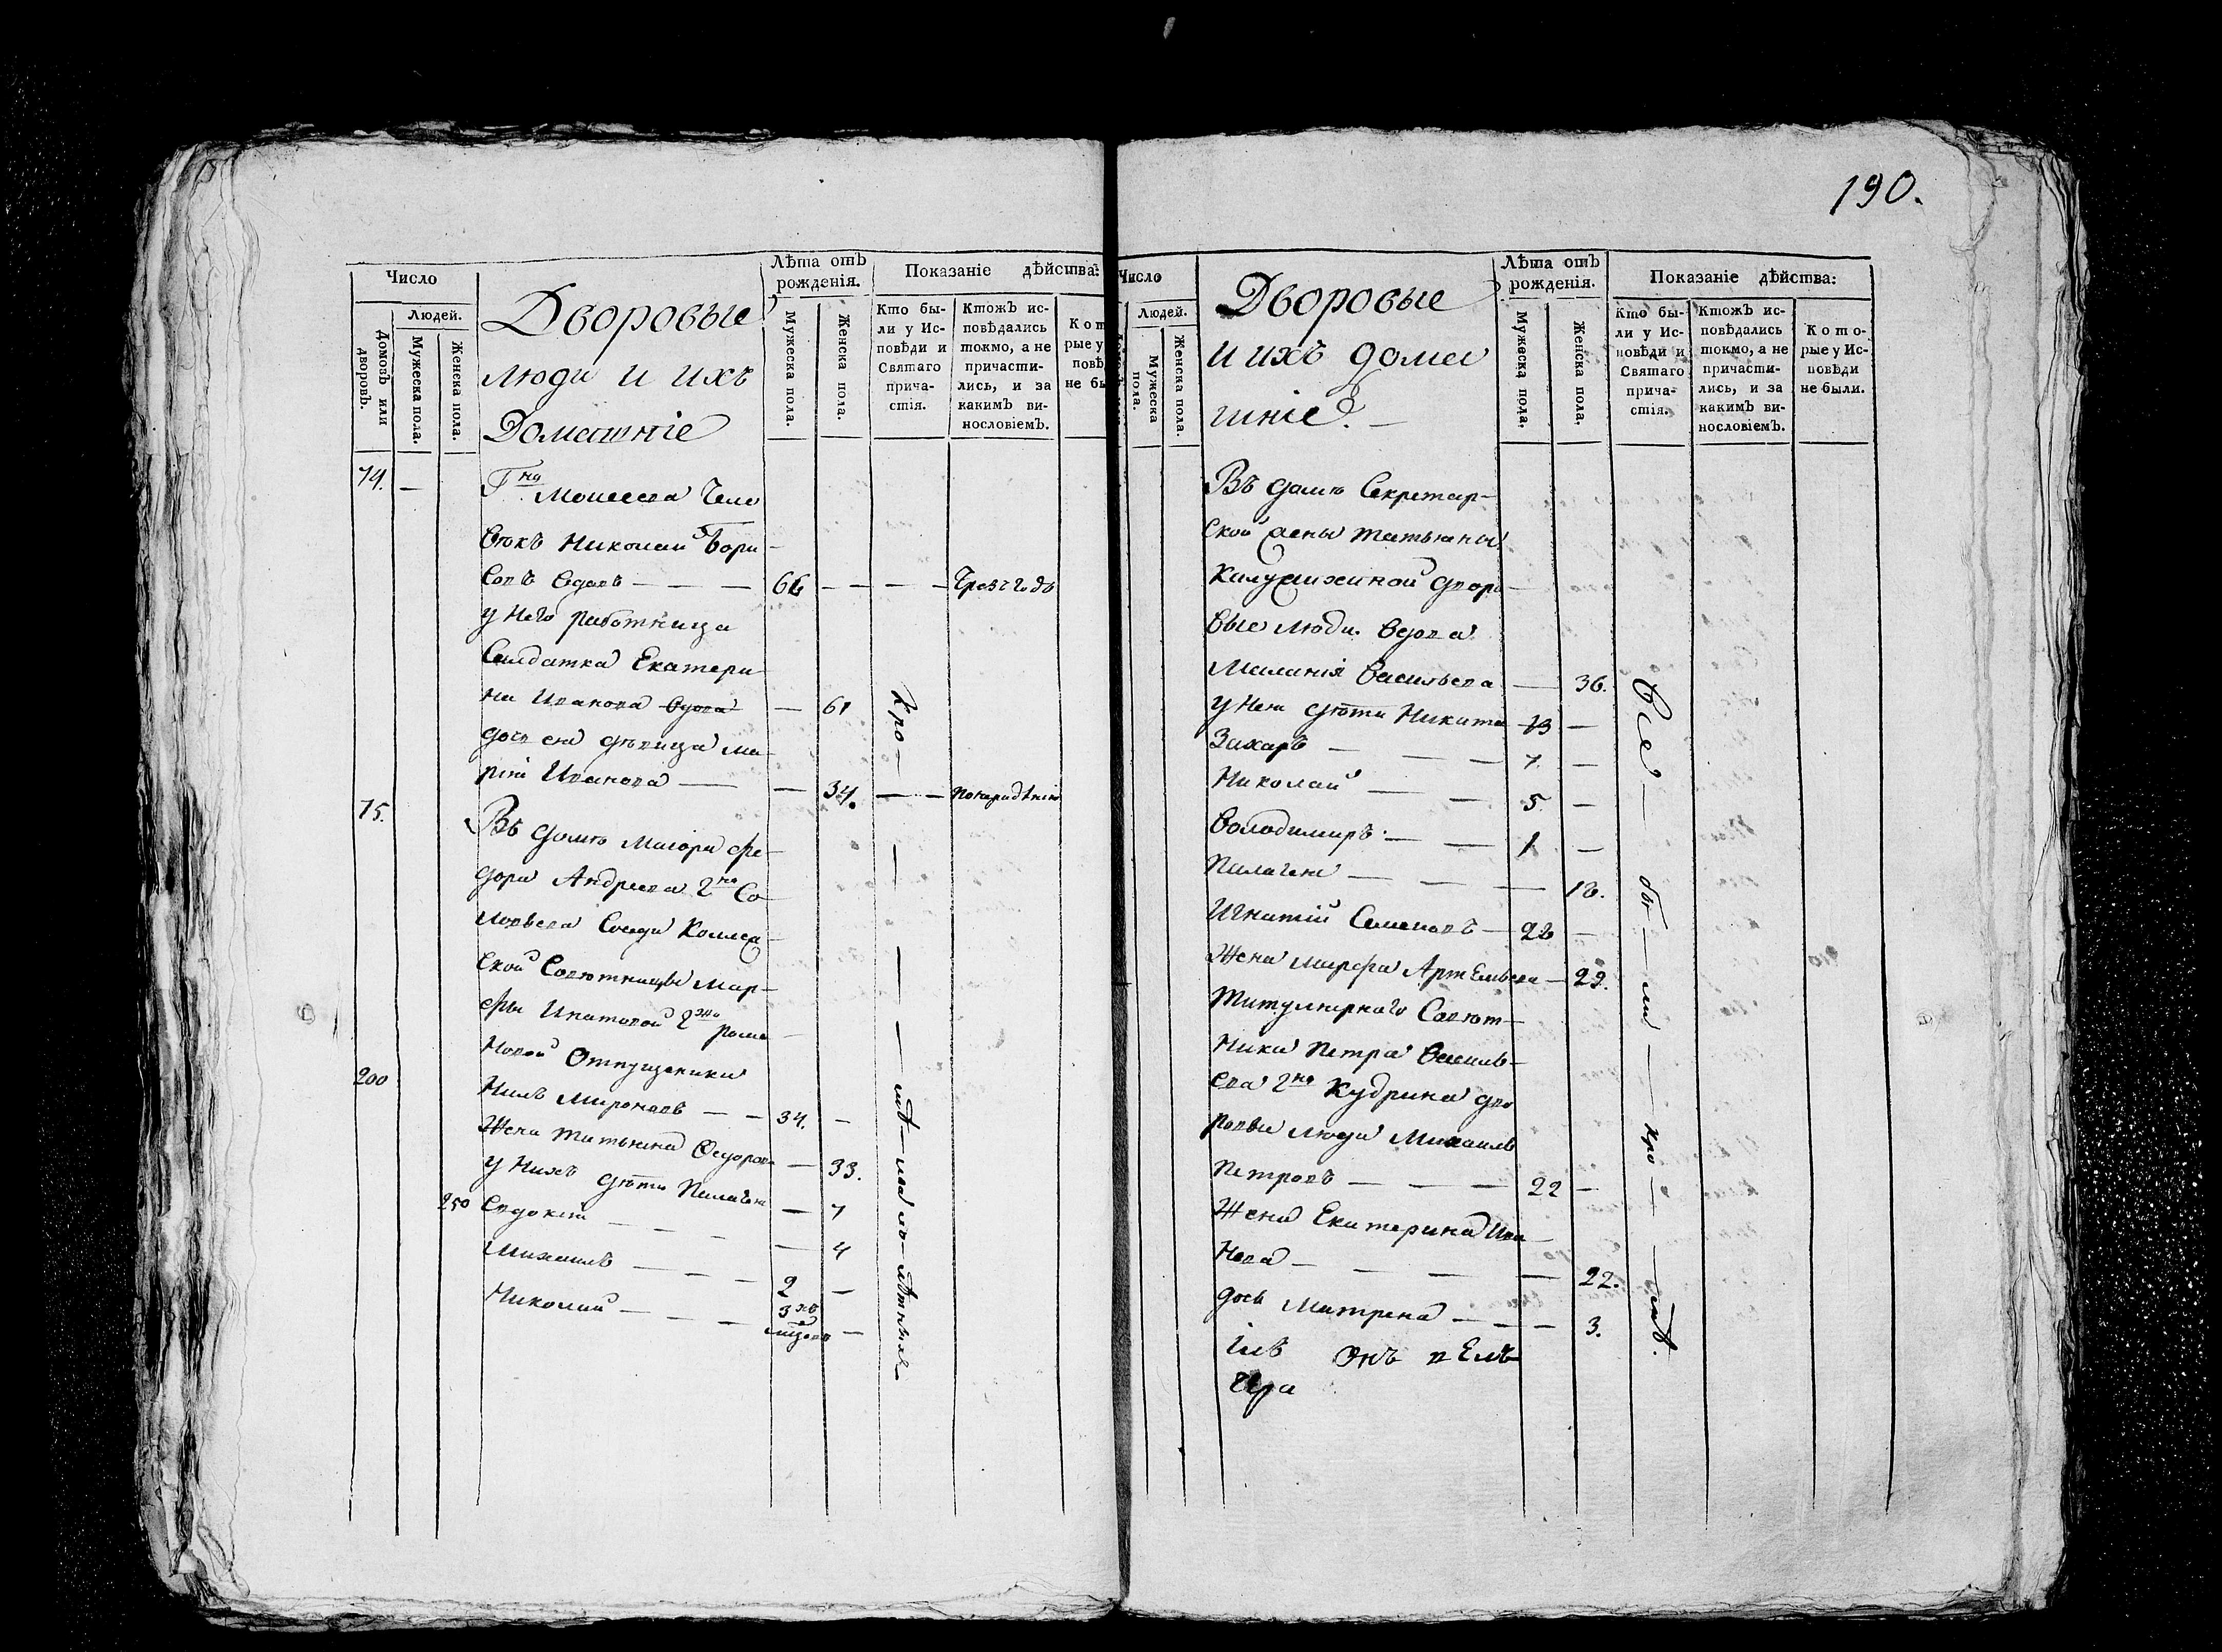 Число
Людей.
Домовъ или дворовъ.
Мужеска пола.
Женска пола.
Дворовые
люди и ихъ
Домашніе
Лѣта отъ рожденія.
Мужеска пола.
Женска пола.
Показаніе дѣйства:
Кто бы-
ли у Ис-
повѣди и
Святаго
прича-
стія.
Ктожъ ис-
повѣдались
токмо, а не
причасти-
лись, и за
какимъ ви-
нословіемъ.
Кот
рые у
повѣ
не бы
74. —
Гна Моисеева Чело
вѣкъ Николай Бори
совъ вдовъ — — — 66 — — — Чрезъ годъ
у него работница
Салдатка Екатери
на Иванова вдова — 61
дочь ея дѣвица Ма
рія Иванова — — 34. — —
75. Въ домѣ Маіора Фе
дора Андреева Гна Со
ловьева
ской Совѣтницы Мар-
фы Игнатовой Гжи Рома
новой Отпущеники
200 Нилъ Мироновъ — — 34. —
Жена Татьяна Федорова — 33.
у нихъ дѣти Пелагея — 7
250 Евдокея — — — 4
Михаилъ — — — 2 —
Николай — — — 3хъ
мцовъ —
Кро — — — — мѣ — мало — лѣтныхъ
190.
Число
Людей.
Мужеска пола.
Женска пола.
Дворовые
и ихъ дома
шніе. —
Лѣта отъ рожденія.
Мужеска пола.
Женска пола.
Показаніе дѣйства:
Кто бы-
ли у Ис-
повѣди и
Святаго
прича-
стія.
Ктожъ ис-
повѣдались
токмо, а не
причасти-
лись, и за
какимъ ви-
нословіемъ.
Кото-
рые у Ис-
повѣди
не были.
Въ домѣ Секретар-
ской жены Татьяны
Калужкиной дворо-
вые люди. вдова
Маланія Васильева — 36.
у нея дѣти Никита 13 —
Захаръ — — — 7. —
Николай — — 5. —
Володимиръ — — 1 —
Пелагея — — —
Игнатій Семеновъ — —
Жена Марфа Артемьева — 29.
Титулярнаго Совѣт-
ника Петра Василь-
ева Гна Кудрина дво
ровыи люди Михаилъ
Петровъ — — — 22 —
Жена Екатерина Ива
нова — — — — 22.
дочь Матрена — — — 3.
Всѣ — бы — ли — кро — — мѣ.